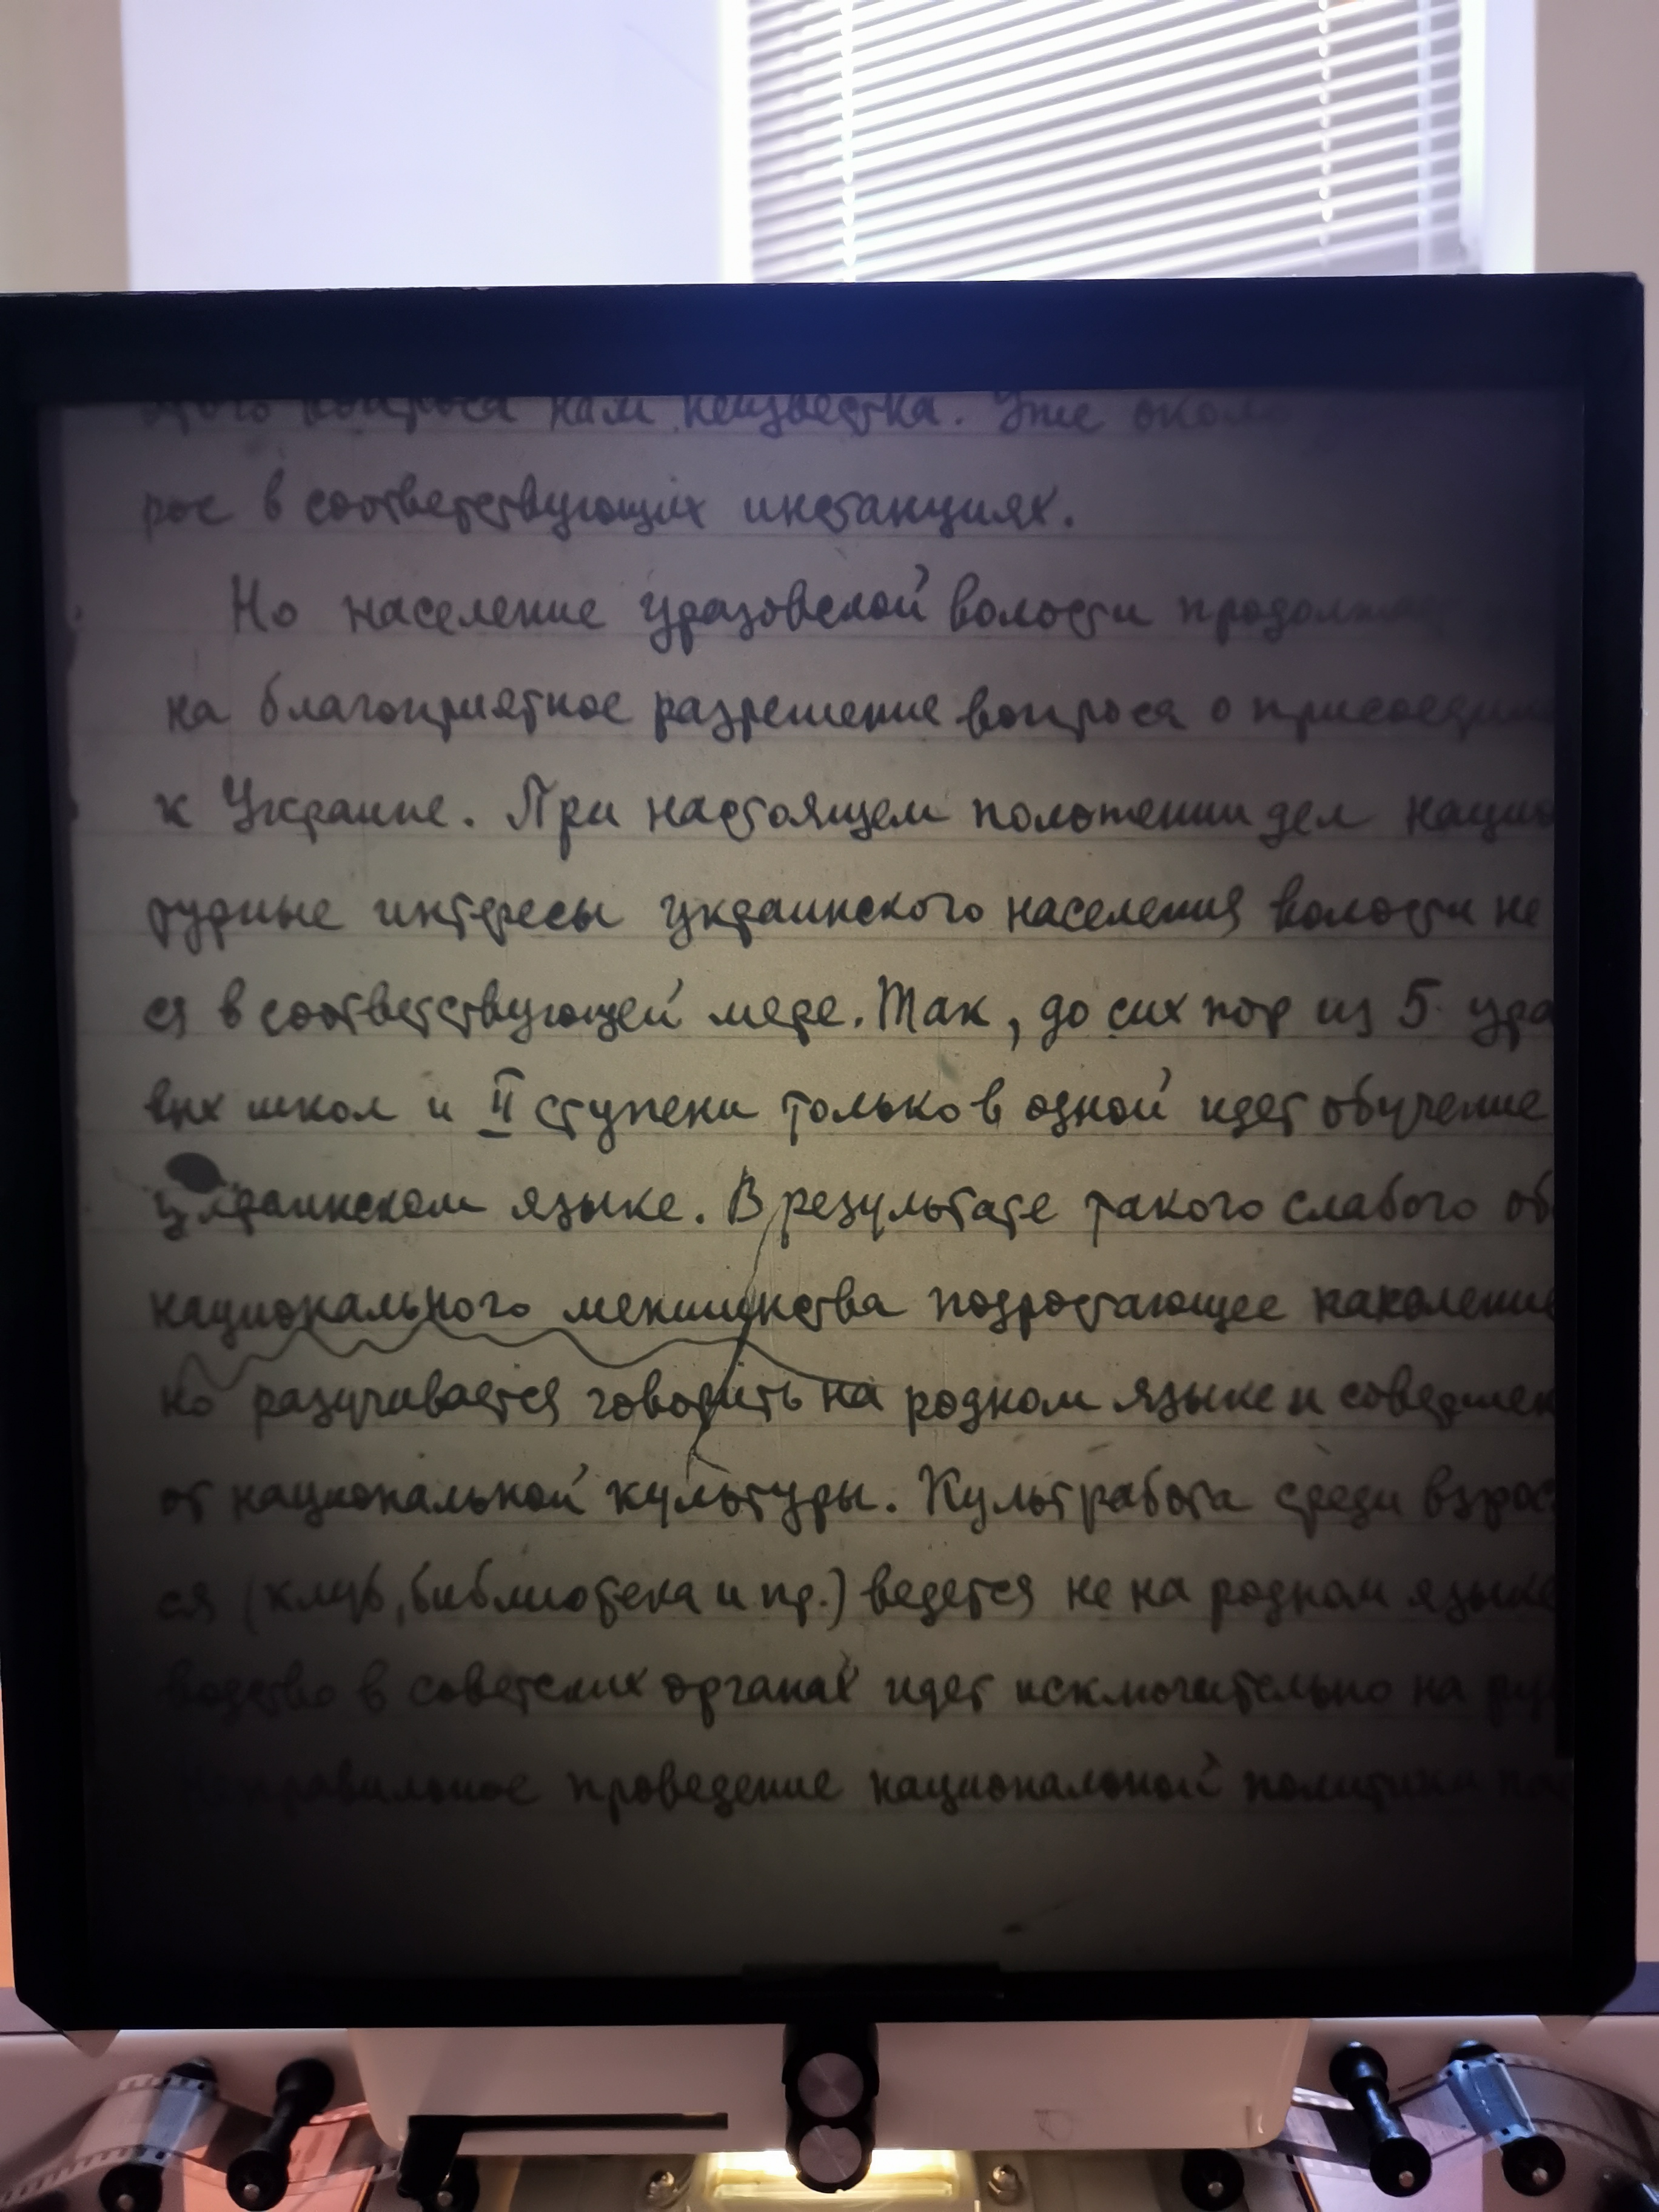 этого вопроса нам неизвестна. Уже около
рос в соответствующих инстанциях.
Но население уразовской волости продолжа
на благоприятное разрешение вопроса о присоедин
к Украине. При настоящем положении дел нацио
турные интересы украинского населения волости не
ся в соответствующей мере. Так, до сих пор из 5 ура
вых школ и II ступени только в одной идет обучение
украинском языке. В результате такого слабого об
национального меншинства подростающее
но разучивается говорить на родном языке и совершен
от национальной культуры. Культработа среди взрос
ся (клуб, библиотека и пр.) ведется не на родном языке
водство в советских органах идет исключительно на ру
правильное проведение национальной политики